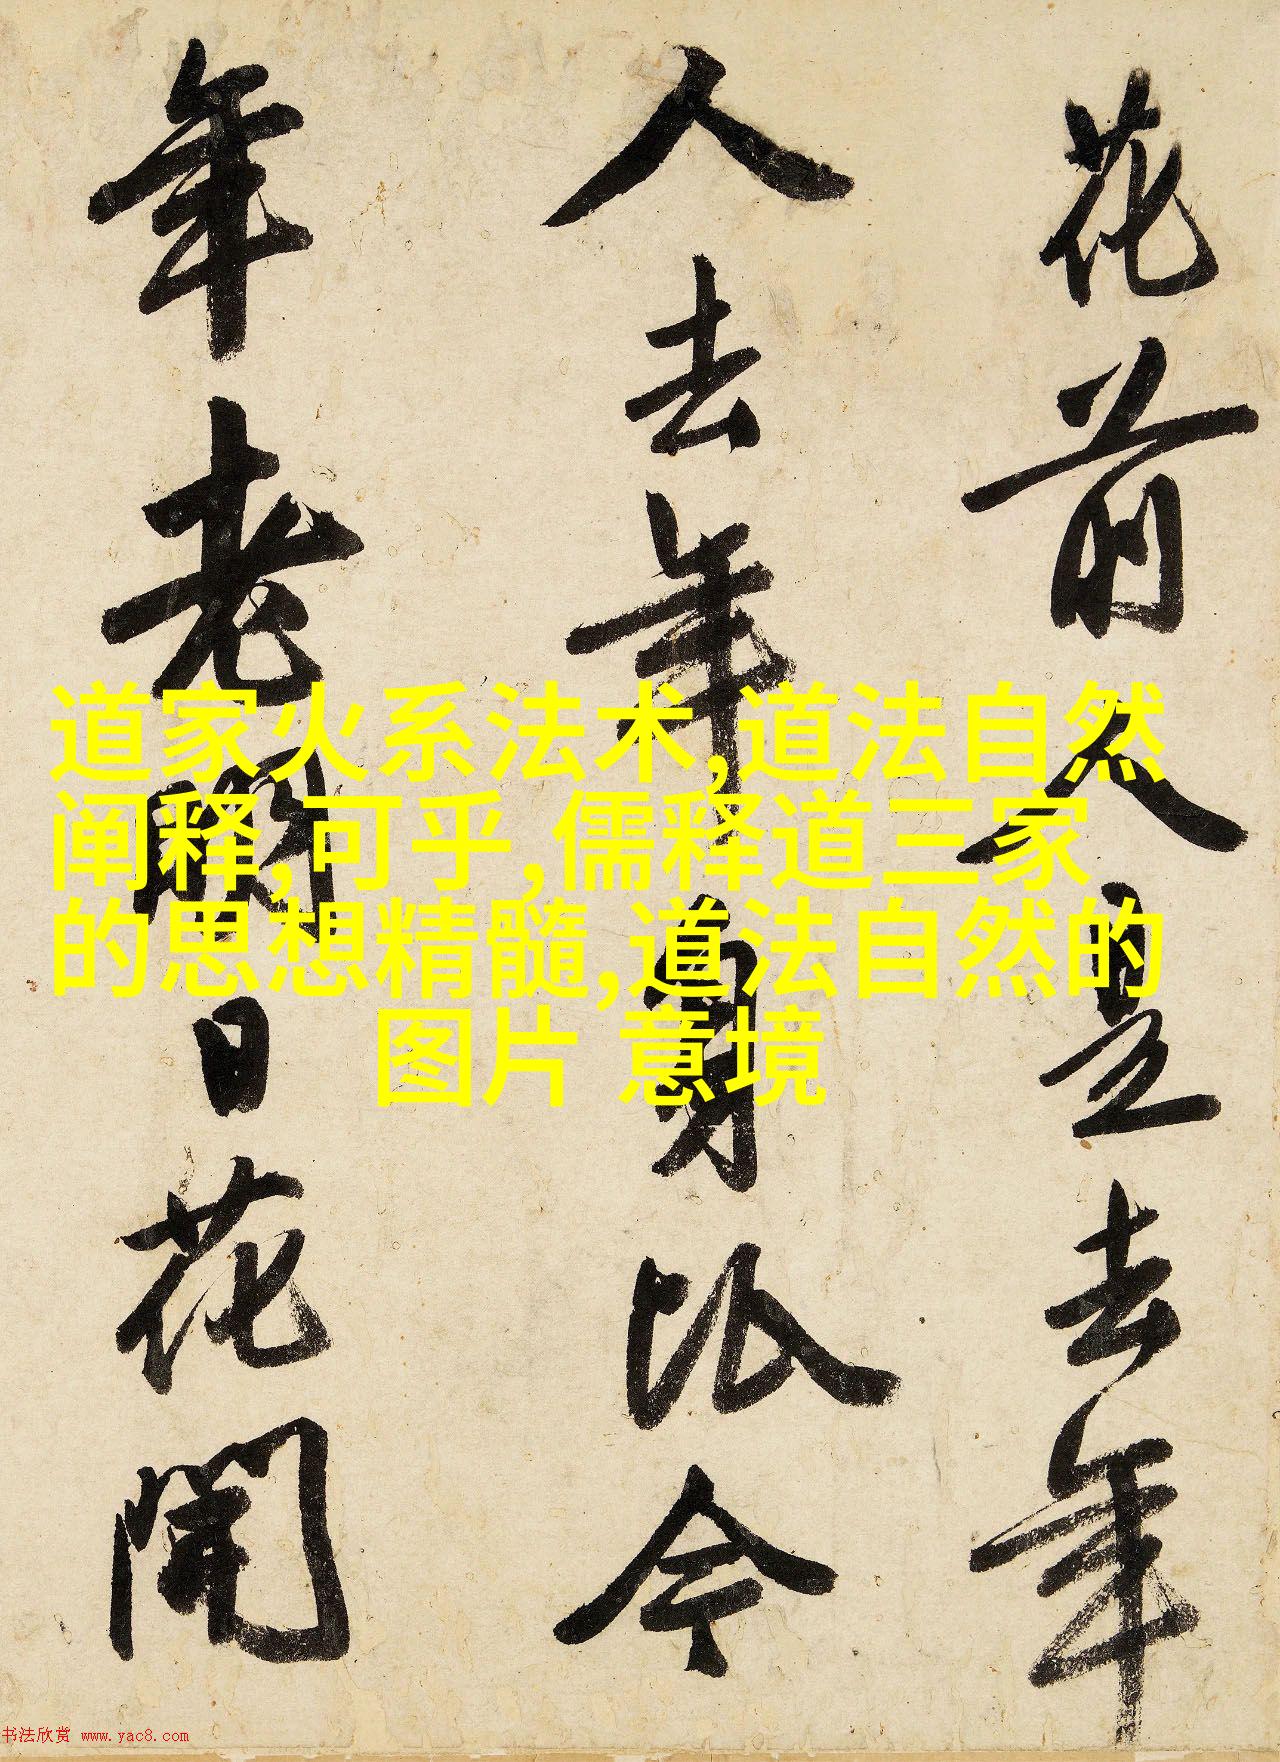 花前人是去年
人去年身比今
年老日花開
道家火系法术,道法自然
阐释,可乎,儒释道三家
的思想精髓,道法自然的
图片 意境
书法欣赏 www.yac8.com